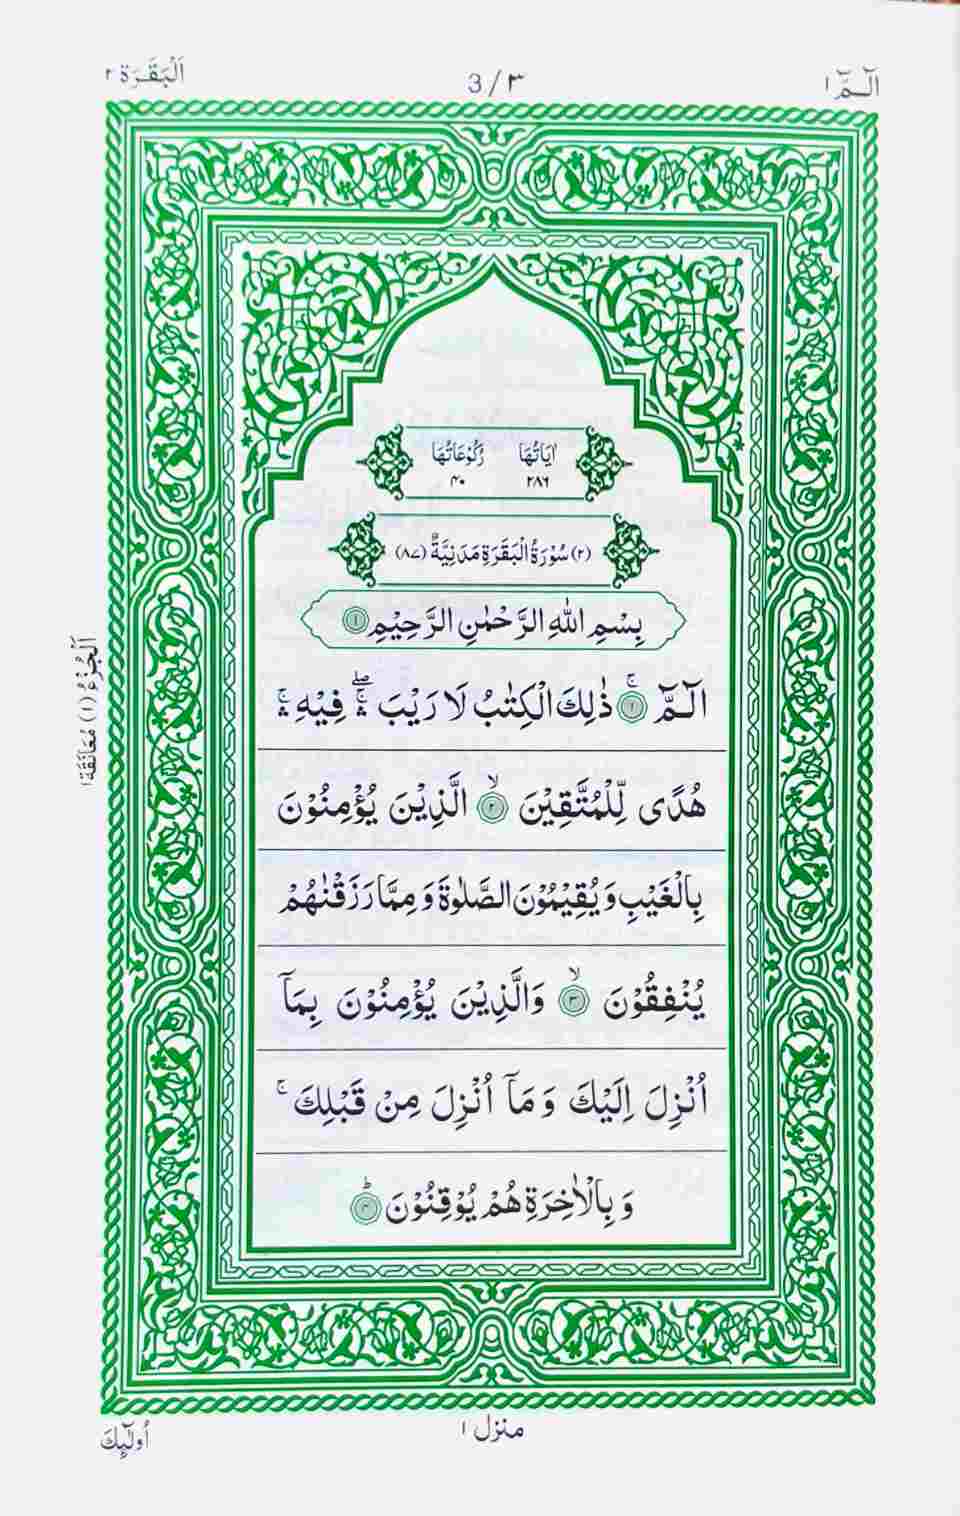 الٓـمّٓ ١
3/٣
اَلْبَقَـرَة ٢
اٰيَاتُهَا رُكُوْعَاتُهَا
٢٨٦ ٤٠
(٢) سُوْرَةُ الْبَقَرَةِ مَدَنِيَّةٌ (٨٧)
بِسْمِ اللّٰهِ الرَّحْمٰنِ الرَّحِيْمِ ۝١
الٓـمّٓ ۝١ۚ ذٰلِكَ الْكِتٰبُ لَا رَيْبَ ۛۖ فِيْهِ ۛۚ
هُدًى لِّلْمُتَّقِيْنَ ۝٢ۙ الَّذِيْنَ يُؤْمِنُوْنَ
بِالْغَيْبِ وَيُقِيْمُوْنَ الصَّلٰوةَ وَمِمَّا رَزَقْنٰهُمْ
يُنْفِقُوْنَ ۝٣ۙ وَالَّذِيْنَ يُؤْمِنُوْنَ بِمَاۤ
اُنْزِلَ اِلَيْكَ وَمَاۤ اُنْزِلَ مِنْ قَبْلِكَ ۚ
وَبِالْاٰخِرَةِ هُمْ يُوْقِنُوْنَ ۝٤ؕ
اَلْجُزْءُ (١) مُعَانَقَة ١
منزل ١
اُولٰٓئِكَ